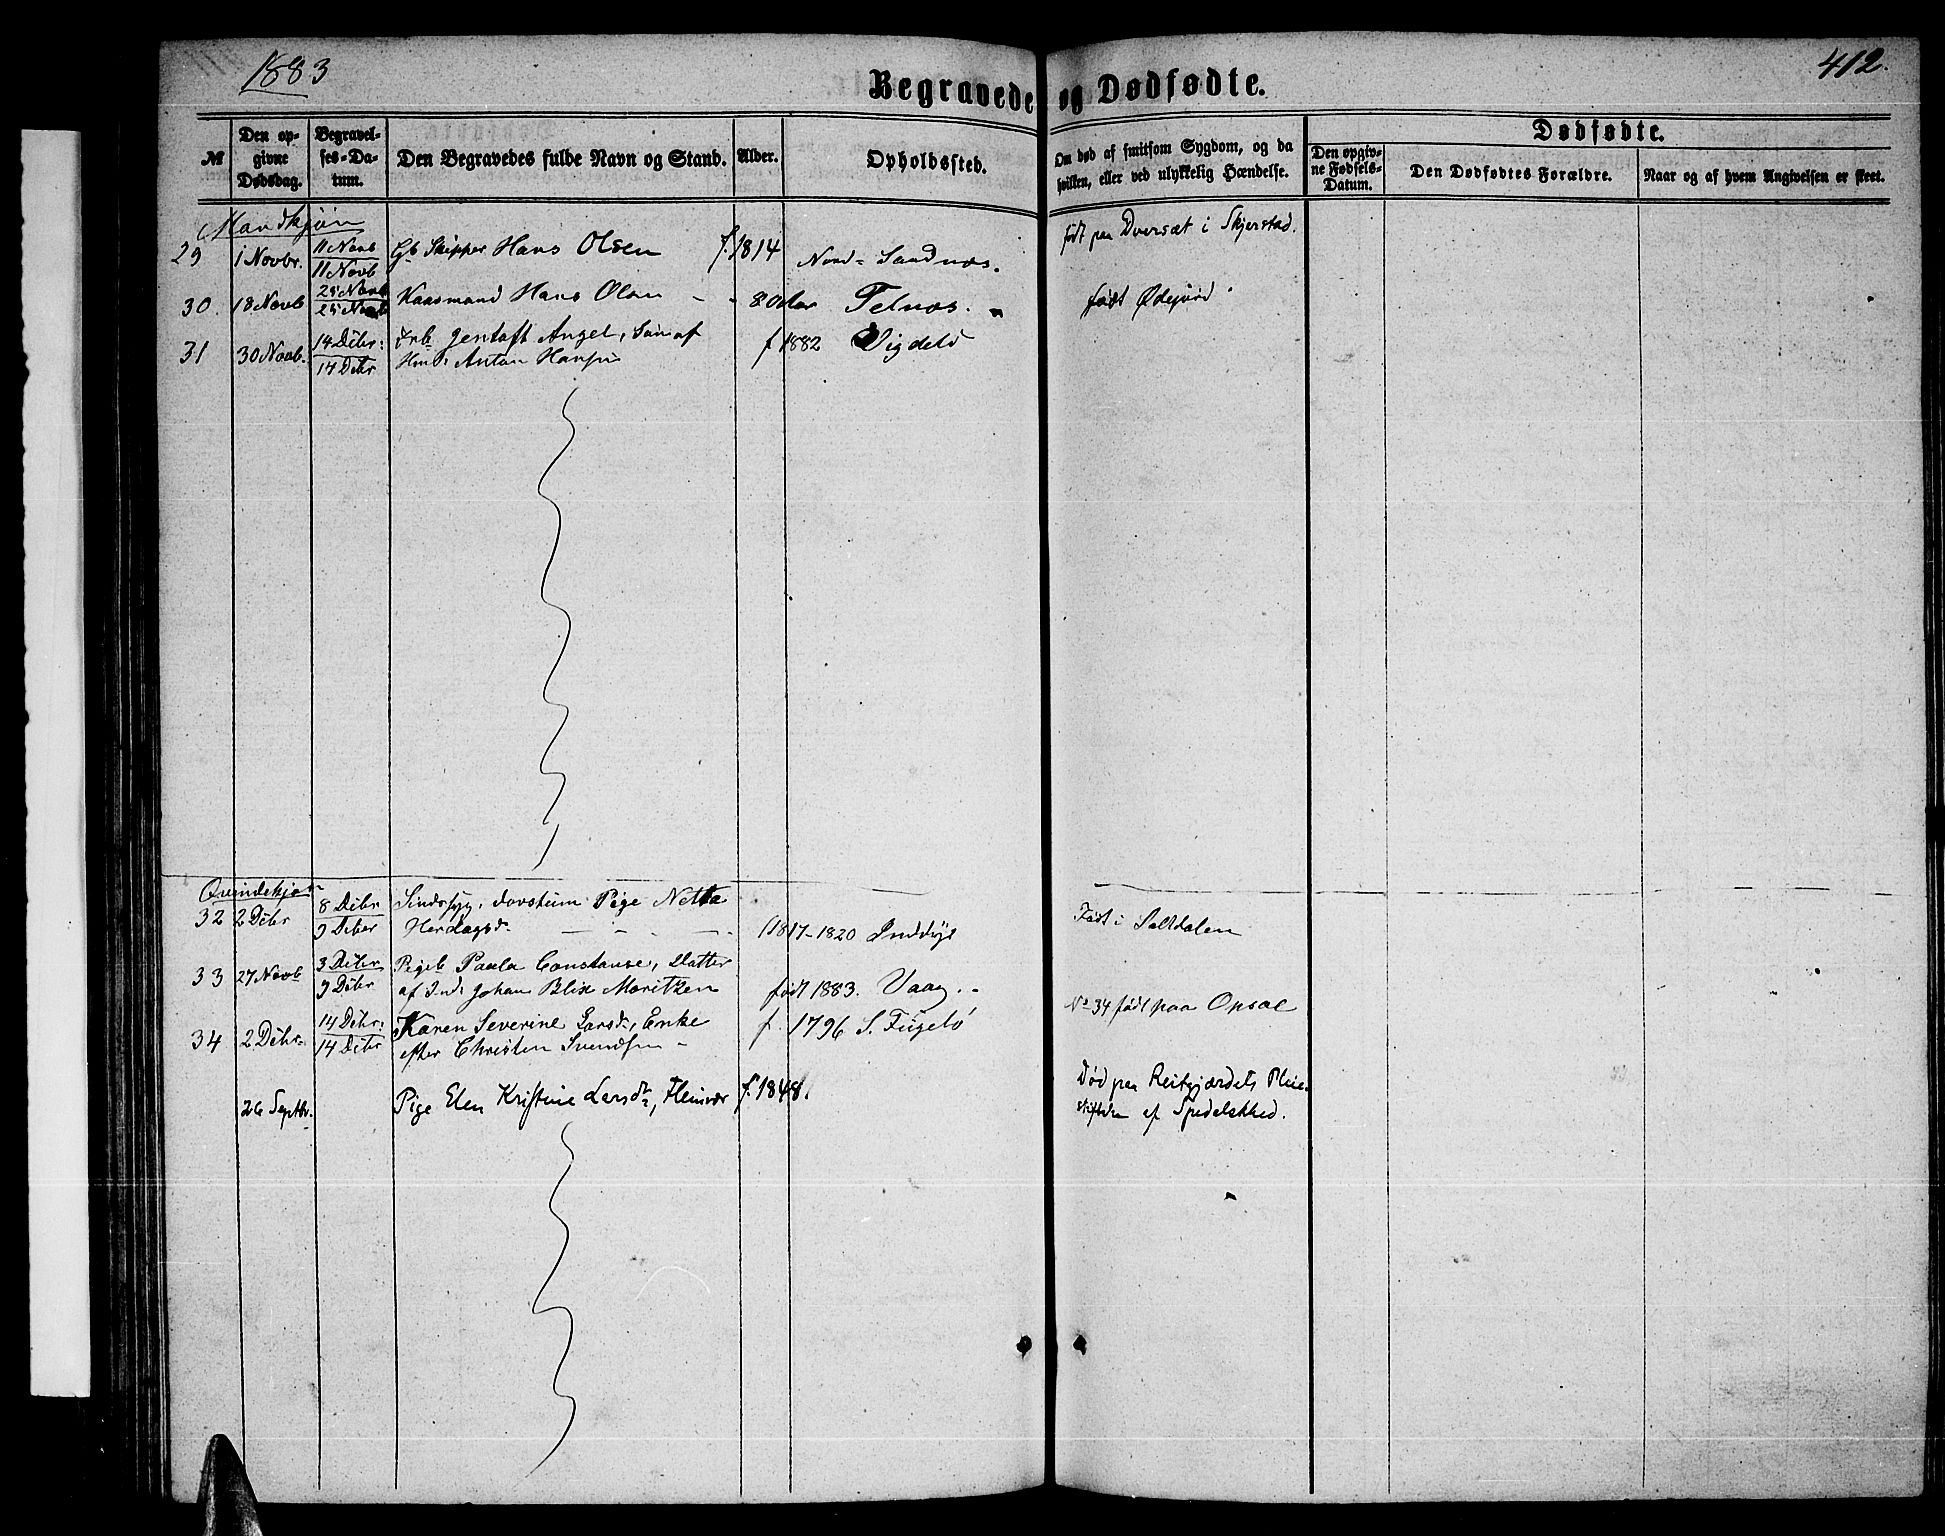 1883
412.
Begravede og Dødfødte.
№
Den opgivne Dødsdag.
Begravelses-Datum.
Den Begravedes fulde Navn og Stand.
Alder.
Opholdssted.
Om død af smitsom Sygdom, og da
hvilken, eller ved ulykkelig Hændelse.
Dødfødte.
Den opgivne Fødsels-Datum.
Den Dødfødtes Forældre.
Naar og af hvem Angivelsen er skeet.
Mandkjøn
29 1 Novbr. 11 Novb 11 Novb Gb Skipper Hans Olsen f. 1814 Nord-Sandnæs. født paa Dversæt i Skjerstad.
30. 18 Novb 25 Novb 25 Novb Kaarmand Hans Olsen 80 Aar Telnæs. født
31 30 Novb. 14 Debr: 14 Debr Gentoft Angel, Søn af
Anton Hansen f 1882
Qvindekjøn
32 2 Debr 8 Debr 9 Deber Sindssyg, døvstum Pige Netta
Herdagsd. (1817-1820 Inddyr Født i Saltdalen
33 27 Novb 3 Debr 9 Debr Pigeb Paula Constanse, Datter
af Inds Johan Blix Moritzen født 1883. Vaag.
34 2 Debr. 14 Debr: 14 Debr Karen Severine Larsd., Enke
efter Christen Svendsen f. 1796 S. Fugelø No 34 født paa Opsal
26 Septbr. Pige Elen Kristine Larsdr, Fleinvær f. 1848. Død paa Reitgjærdets Pleie-
stiftelse af Spedalskhed.